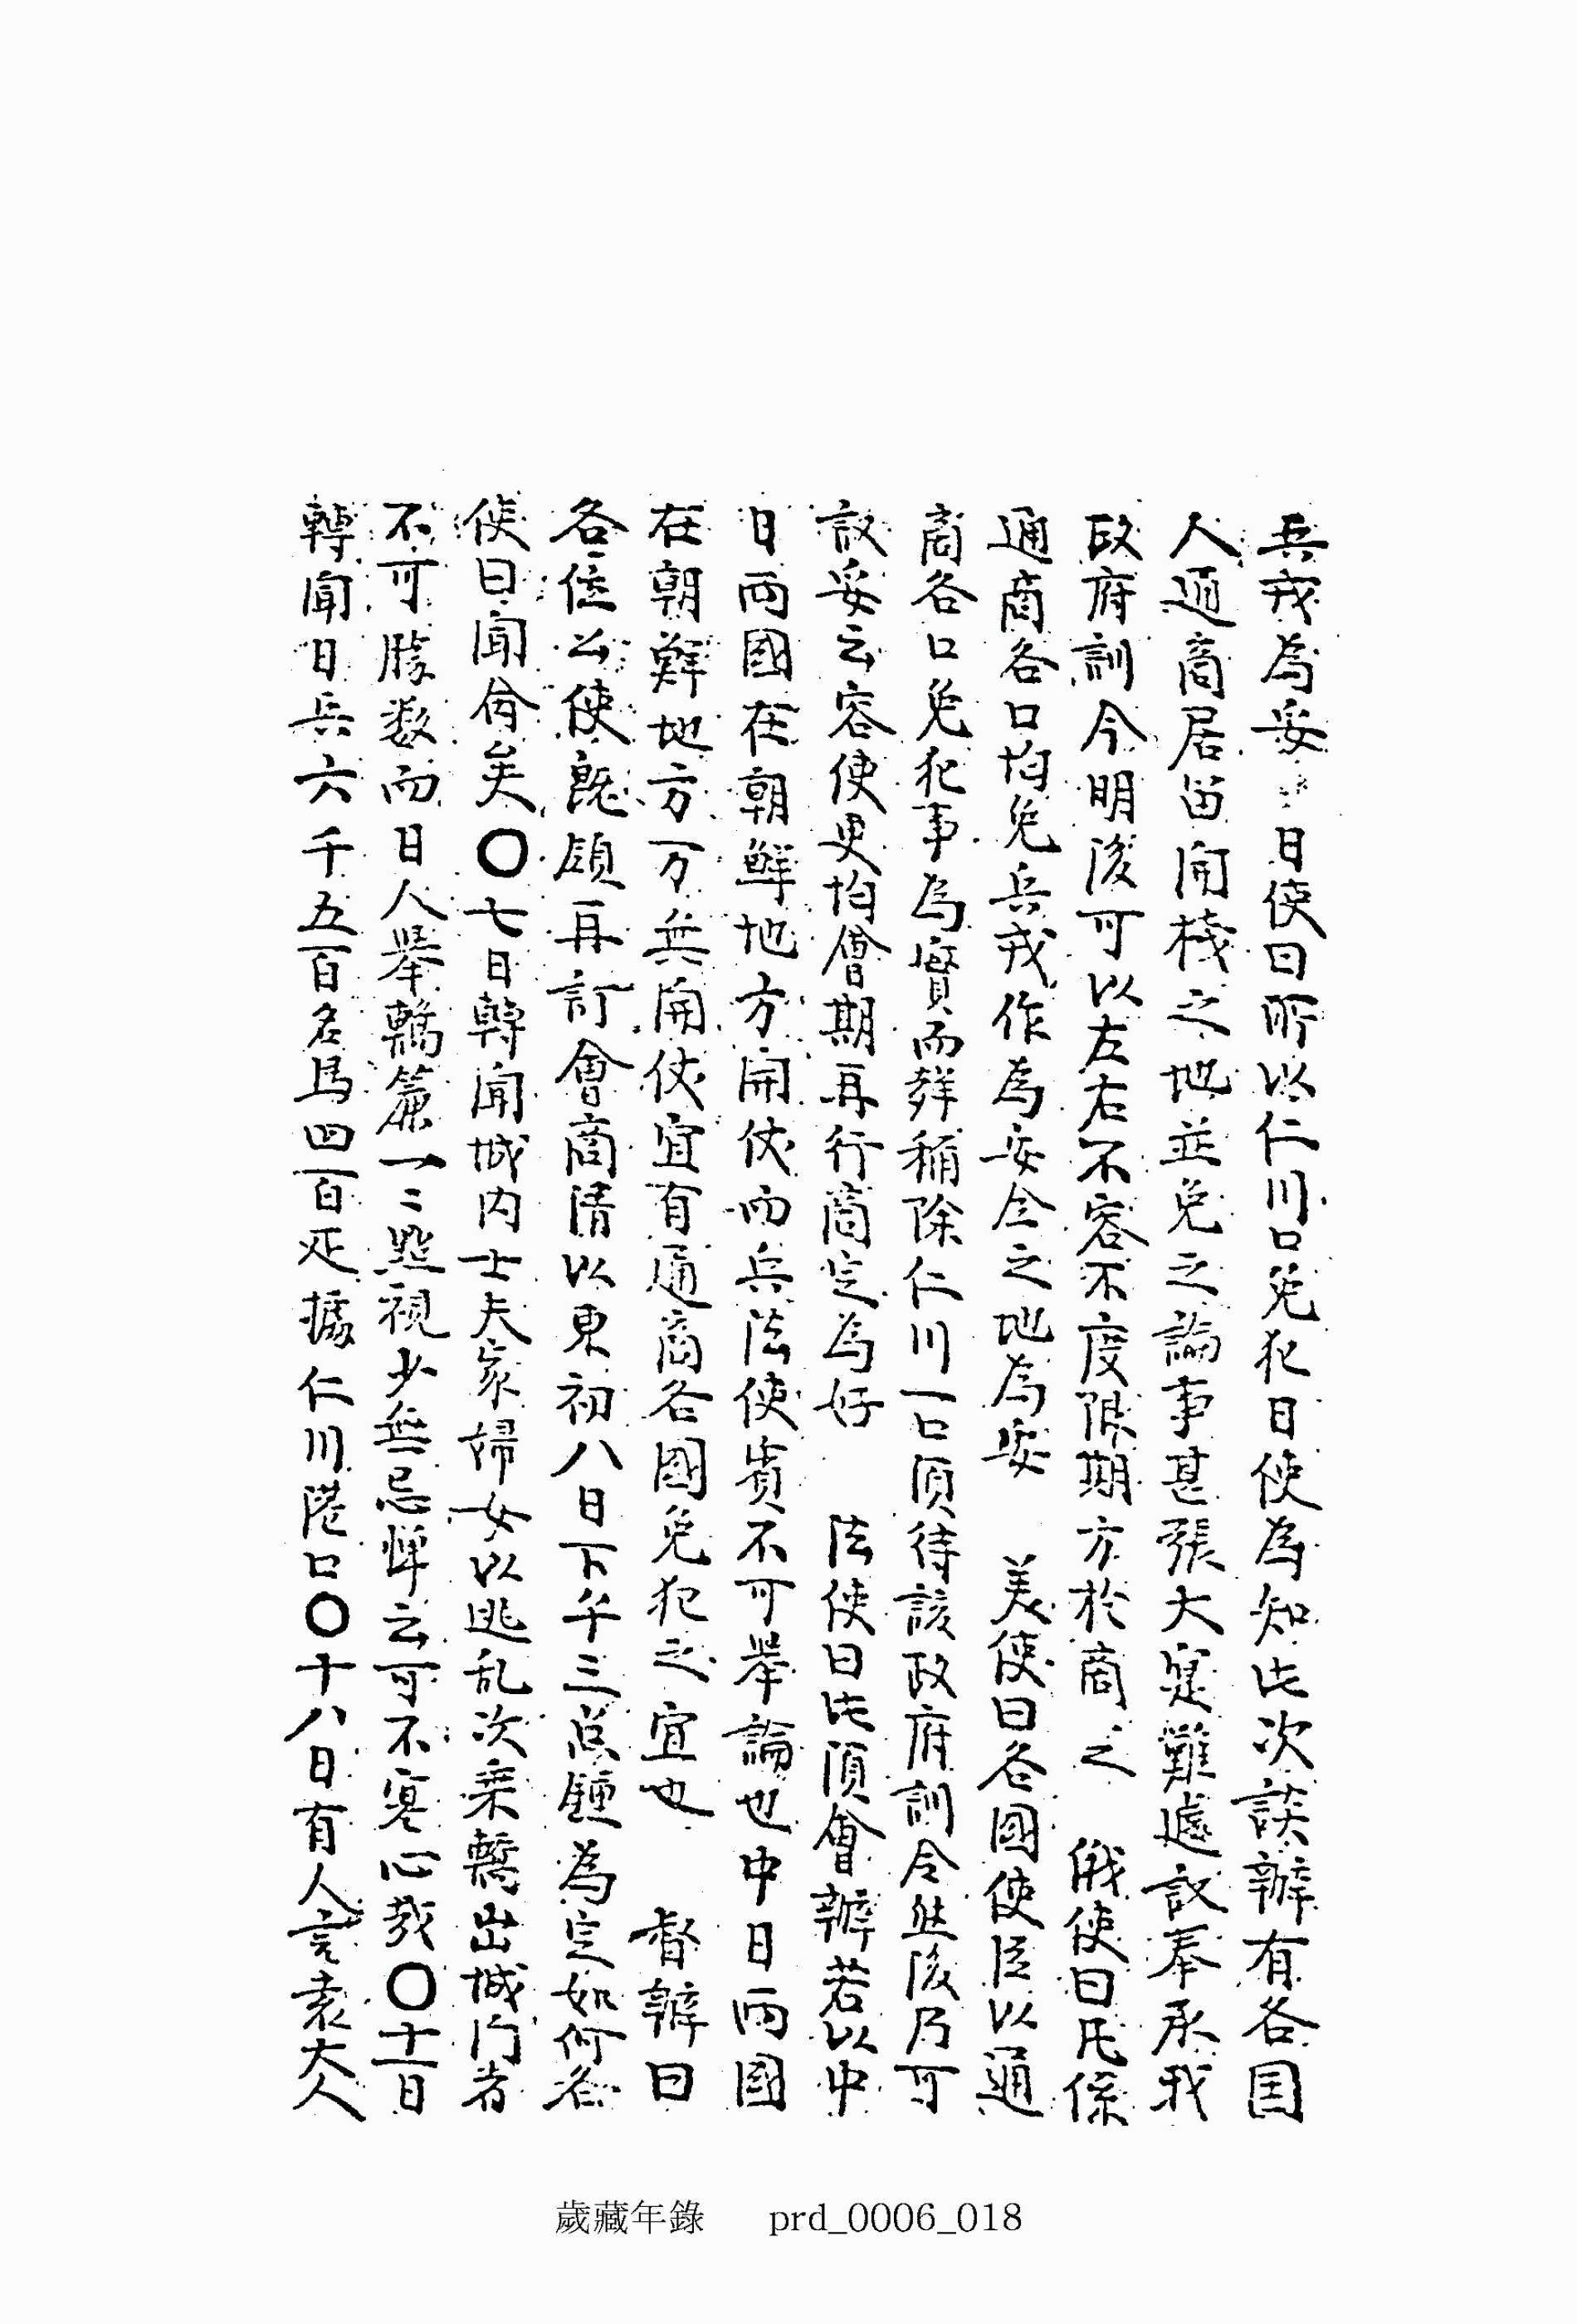 兵戎爲妥 日使曰所以仁川口免犯日使爲知此次談辦有各国
人通商居留開棧之地並免之論事甚張大寔難遽議奉承我
政府訓令明後可以左右不容不度限期方於商之 俄使曰凡係
通商各口均免兵戎作爲妥全之地爲妥 美使曰各國使臣以通
商各口免犯事爲實而詳稱除仁川一口須待該政府訓令然後乃可
議妥云容使更均會期再行商定爲好 法使曰此須會辦若以中
日兩國在朝鮮地方開仗而兵法使責不可擧論也中日兩國
在朝鮮地方万無開仗宜有通商各國免犯之宜也 督辦曰
各位公使旣願再訂會商淸以更初八日下午三点鍾爲定如何各
使曰聞命矣〇七日轉聞城內士夫家婦女以逃乱次乘轎出城門者
不可勝数而日人擧轎簾一〻點視少無忌憚云可不寒心哉〇十一日
轉聞日兵六千五百名馬四百疋據仁川港口〇十八日有人言袁大人
歲藏年錄 prd_0006_018